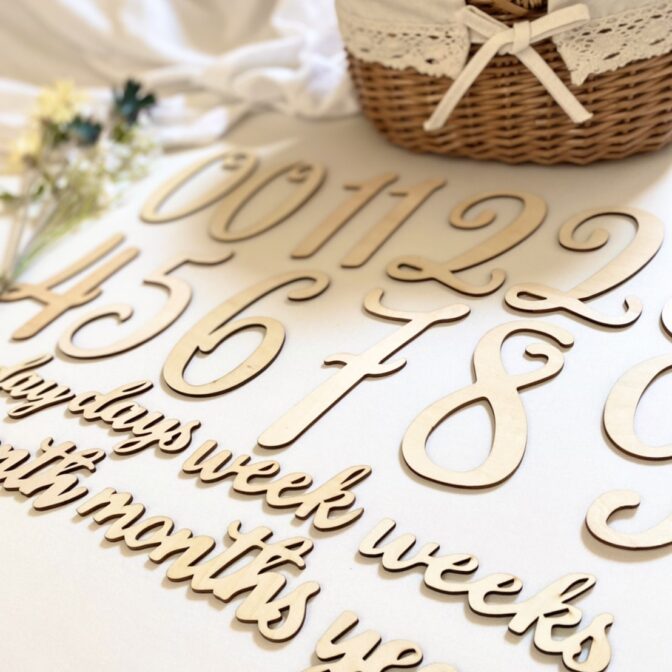 0 0 1 1 2 2
4 5 6 7 8 9
day days week weeks
month months